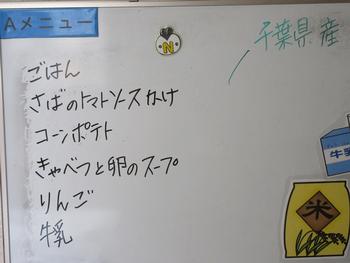 Aメニュー
N
千葉県産
ごはん
さばのトマトソースかけ
コーンポテト
きゃべつと卵のスープ
りんご
牛乳
牛乳
米